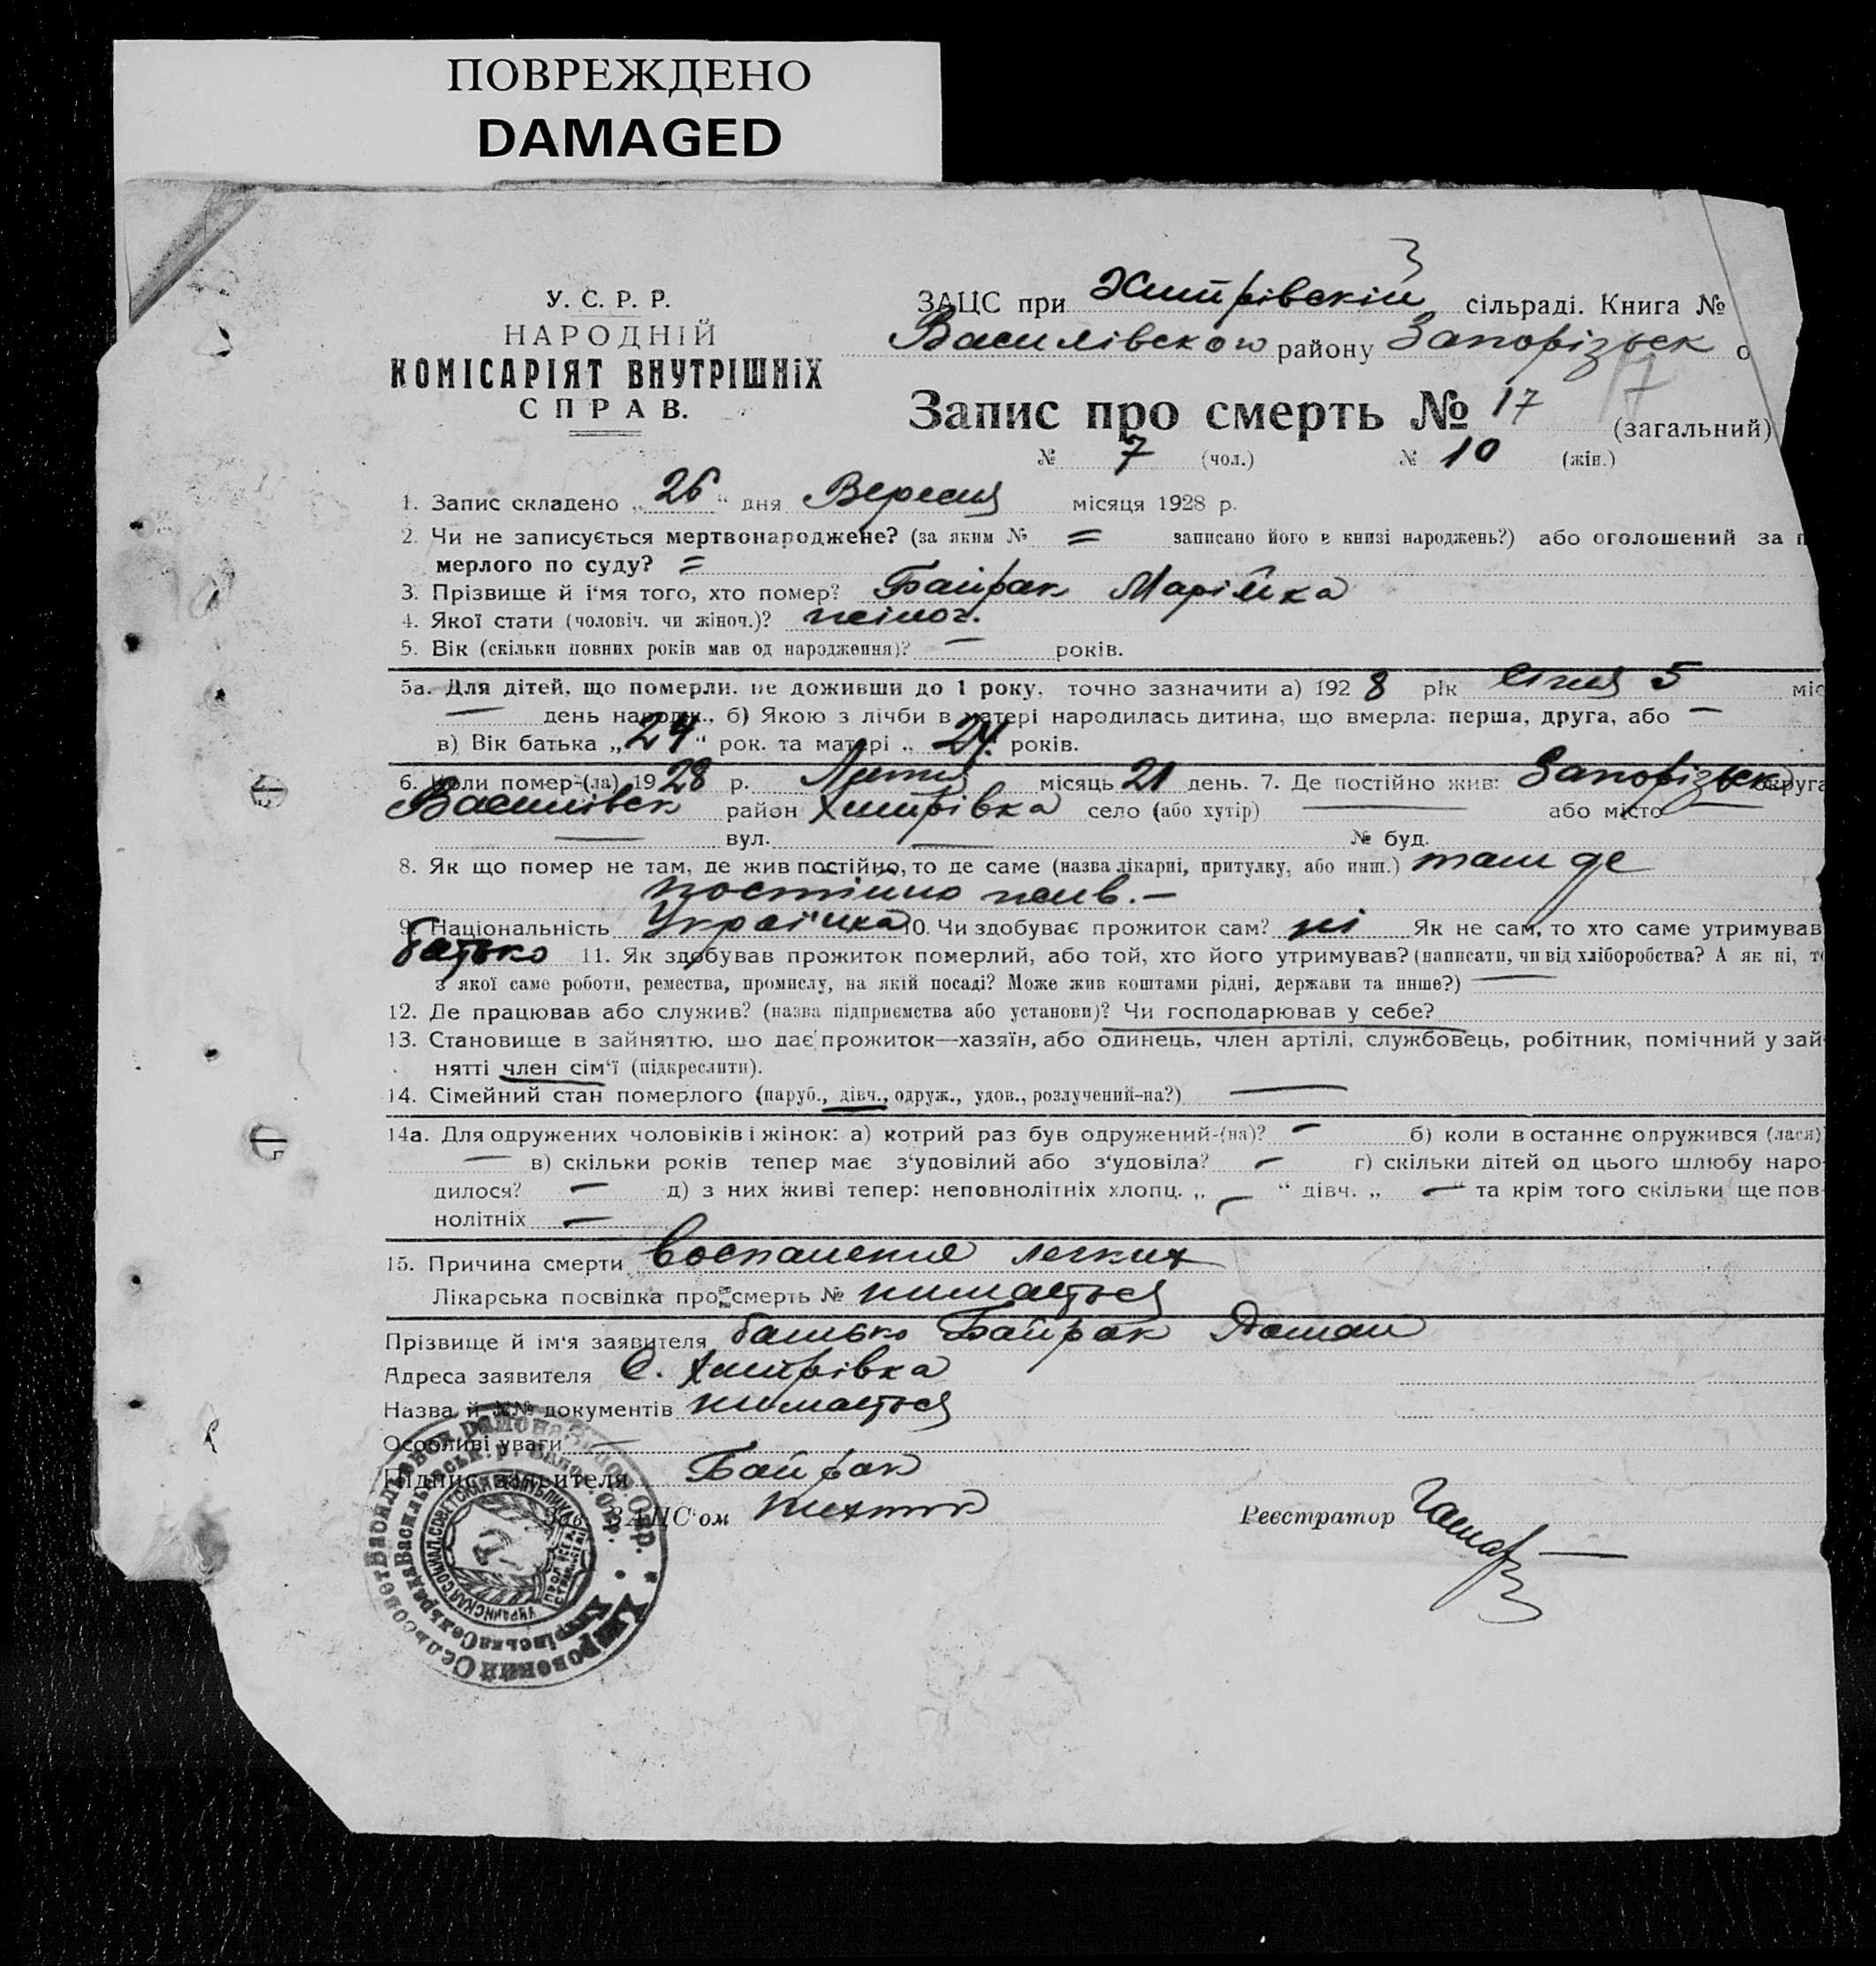 ПОВРЕЖДЕНО
DAMAGED
У. С. Р. Р.
НАРОДНІЙ
КОМІСАРІЯТ ВНУТРІШНІХ
СПРАВ.
ЗАЦС при Хитрівскій сільраді. Книга №
Василівского району Запорізьск о
Запис про смерть № 17 17 (загальний)
№ 7 (чол.) № 10 (жін.)
1. Запис складено „ 26 “ дня Вересня місяця 1928 р.
2. Чи не записується мертвонароджене? (за яким № = записано його в книзі народжень?) або оголошений за п
мерлого по суду? =
3. Прізвище й і'мя того, хто помер? Байрак Марійка
4. Якої стати (чоловіч. чи жіноч.)? жіноч.
5. Вік (скільки повних років мав од народження)? — років.
5а. Для дітей, що померли, не доживши до 1 року, точно зазначити а) 192 8 рік Січня 5 міс
— день народж., б) Якою з лічби в матері народилась дитина, що вмерла: перша, друга, або —
в) Вік батька „ 24 “ рок. та матері „ 24 “ років.
6. Коли помер-(ла) 19 28 р. місяць 21 день. 7. Де постійно жив: Запорізьск округа
Василівск район Хитрівка село (або хутір) — або місто —
— вул. — № буд.
8. Як що помер не там, де жив постійно, то де саме (назва лікарні, притулку, або инш.) там де
постійно жив. —
9. Національність Украї'нка 10. Чи здобуває прожиток сам? ні Як не сам, то хто саме утримував
батько 11. Як здобував прожиток померлий, або той, хто його утримував? (написати, чи від хліборобства? А як ні, то
з якої саме роботи, ремества, промислу, на якій посаді? Може жив коштами рідні, держави та инше?) —
12. Де працював або служив? (назва підприємства або установи)? Чи господарював у себе?
13. Становище в зайняттю, що дає прожиток—хазяїн, або одинець, член артілі, службовець, робітник, помічний у зай-
нятті член сім'ї (підкреслити).
14. Сімейний стан померлого (паруб., дівч., одруж., удов., розлучений-на?) —
14а. Для одружених чоловіків і жінок: а) котрий раз був одружений-(на)? — б) коли в останнє одружився (лася)
— в) скільки років тепер має з'удовілий або з'удовіла? — г) скільки дітей од цього шлюбу наро-
дилося? — д) з них живі тепер: неповнолітніх хлопц. „ — “ дівч. „ — “ та крім того скільки ще пов-
нолітніх —
15. Причина смерти воспаление легких
Лікарська посвідка про смерть № нимається
Прізвище й ім'я заявителя батько Байрак
Адреса заявителя С. Хитрівка
Назва й №№ документів нимається
Особливі уваги —
Підпис заявителя Байрак
Зав. ЗАЦС'ом
Реєстратор